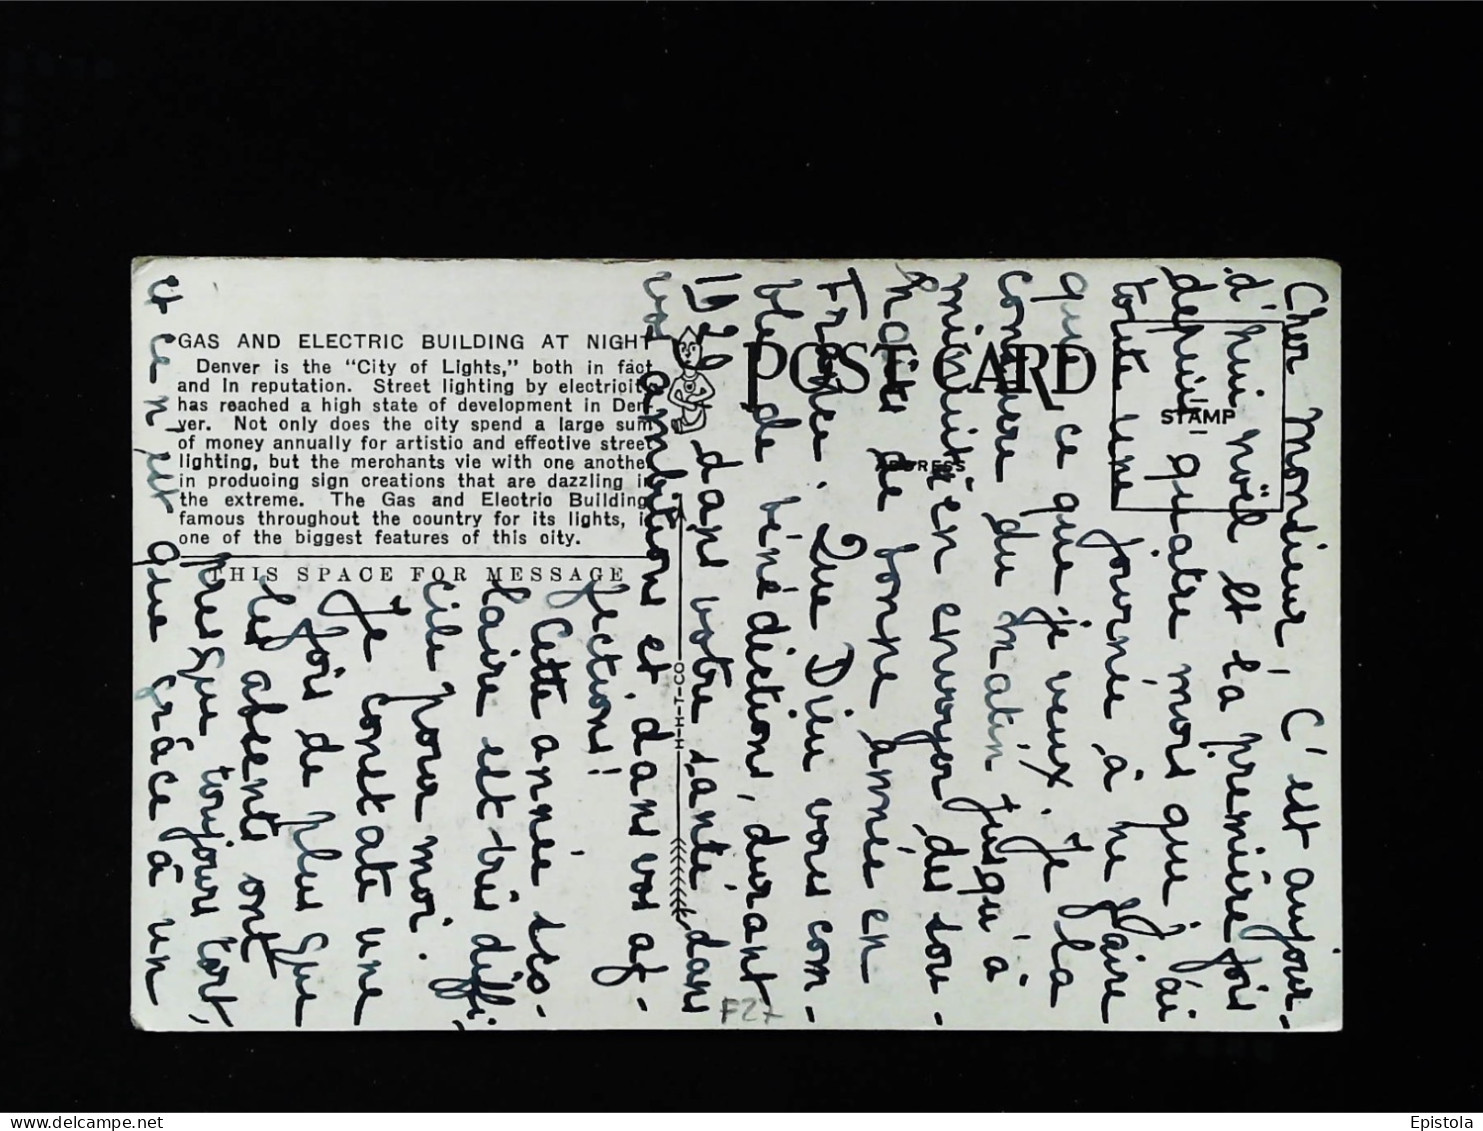 GAS AND ELECTRIC BUILDING AT NIGHT
Denver is the "City of Lights," both in fact
and in reputation. Street lighting by electricity
has reached a high state of development in Den-
ver. Not only does the city spend a large sum
of money annually for artistic and effective street
lighting, but the merchants vie with one another
in producing sign creations that are dazzling in
the extreme. The Gas and Electric Building
famous throughout the country for its lights, i
one of the biggest features of this city.
THIS SPACE FOR MESSAGE
POST CARD
ADDRESS
STAMP
H-H-T-CO
Cher Monsieur, C'est aujour-
d'hui noël et la première fois
depuis quatre mois que j'ai
toute une journée à ne faire
que ce que je veux. Je la
consacre du matin jusqu'à
minuit en envoyer des sou-
haits de bonne année en
France. Que Dieu vous com-
ble de bénédictions, durant
1920 dans votre santé, dans
vos ambitions et dans vos af-
fections!
Cette année sco-
laire est très diffi-
cile pour moi.
Je constate une
fois de plus que
les absents ont
presque toujours tort,
et ce n'est que grâce à un
F27
delcampe.net
Epistola